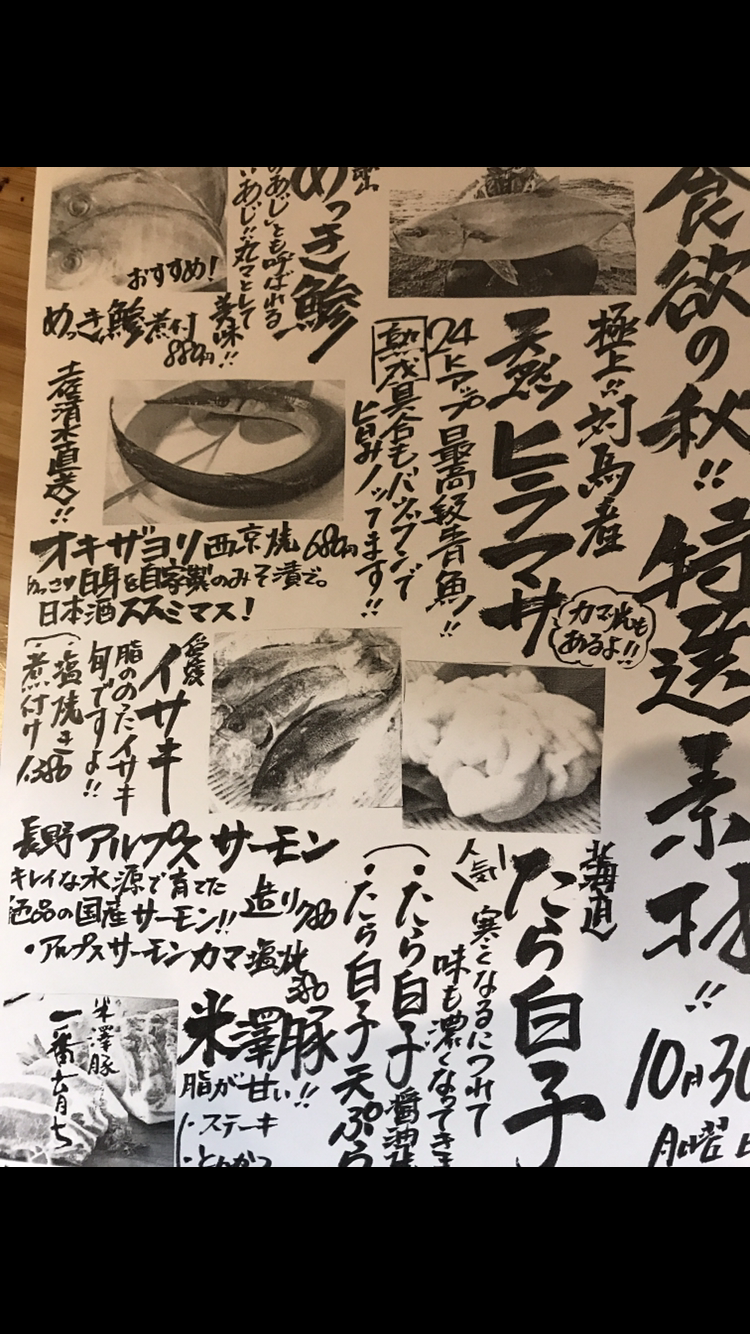 食欲の秋!! 特選素材!!
10月30
月曜日
極上!!対馬産
天然ヒラマサ
カマ焼も
あるよ!!
24ヒアップ最高級青魚!!
熟成具合もバツグンで
旨みノッてます!!
めっき鯵
のあじ”とも呼ばれる
いあじ!!丸マとして
美味!!
おすすめ!
めっき鯵煮付
880円
土佐清水直送!!
オキザヨリ西京焼 680円
白身を自家製のみそ漬で。
日本酒ススミマス!
愛媛
イサキ
脂ののったイサキ
旬ですよ!!
・塩焼き
・煮付け 1,380
北海道
たら白子
人気
寒くなるにつれて
味も濃くなってきま
・たら白子醤油焼
・たら白子天ぷら
長野アルプスサーモン
キレイな水源で育てた
絶品の国産サーモン!!
造り 780
・アルプスサーモンカマ塩焼
380
米澤豚
脂が甘い!!
・ステーキ
・とんかつ
米澤豚
一番育ち